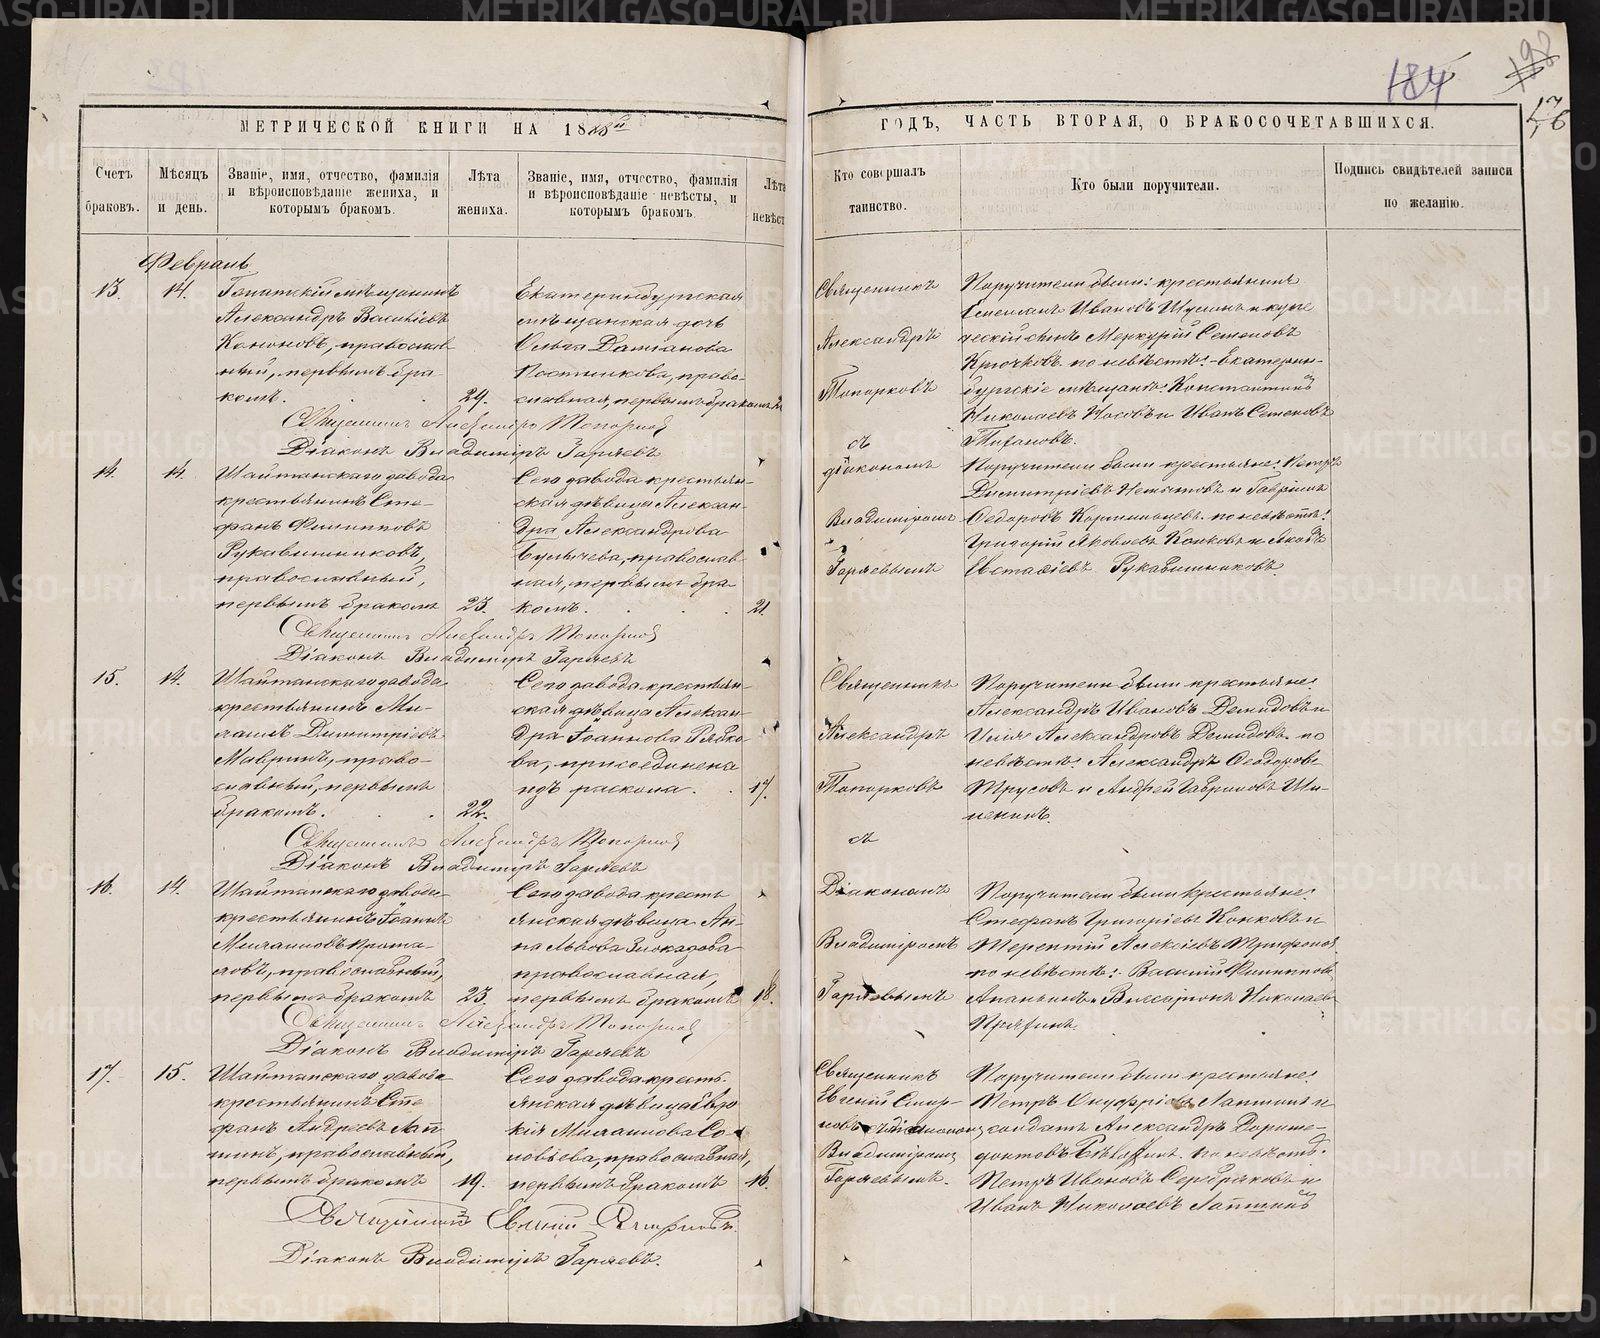 184
198
176
МЕТРИЧЕСКОЙ КНИГИ НА 188
ГОДЪ, ЧАСТЬ ВТОРАЯ, О БРАКОСОЧЕТАВШИХСЯ.
Счетъ браковъ.
Мѣсяцъ и день.
Званіе, имя, отчество, фамилія и вѣроисповѣданіе жениха, и которымъ бракомъ.
Лѣта жениха.
Званіе, имя, отчество, фамилія и вѣроисповѣданіе невѣсты, и которымъ бракомъ.
Лѣта невѣст
Кто совершалъ таинство.
Кто были поручители.
Подпись свидѣтелей записи по желанію.
Февраль
13. 14.
мѣщанинъ
Александръ Васильевъ
Кононовъ, православ
ный, первымъ бра
комъ. 24.
Екатеринбургская
мѣщанская дочь
Ольга Даміанова
Постникова, право-
славная, первымъ бракомъ
Священникъ
Александръ
Топорковъ
съ
діакономъ
Владиміромъ
Гаряевымъ
Поручители были: крестьянинъ
Ивановъ и купе
ческій сынъ Меркурій Семеновъ
Крючковъ. по невѣстѣ: Екатерин-
бургскіе мѣщане Константинъ
Николаевъ Носовъ и Иванъ Семеновъ
Священникъ Александръ Топорков
Діаконъ Владиміръ Гаряевъ
14. 14.
Шайтанскаго завода
крестьянинъ Сте-
фанъ Филипповъ
Рукавишниковъ,
православный,
первымъ бракомъ 23.
Сего завода крестьян-
ская дѣвица Алексан-
дра Александрова
Булычева, православ-
ная, первымъ бра
комъ. 21
Поручители были крестьяне: Петръ
Димитріевъ и Гавріилъ
Ѳедоровъ по невѣстѣ:
Григорій Яковлевъ Конковъ и Яковъ
Евстафіевъ Рукавишниковъ.
Священникъ Александръ Топорков
Діаконъ Владиміръ Гаряевъ
15. 14.
Шайтанскаго завода
крестьянинъ Ми-
хаилъ Димитріевъ
Мавринъ, право-
славный, первымъ
бракомъ. 22.
Сего завода крестьян-
ская дѣвица Алексан-
дра Іоаннова Рябко-
ва, присоединена
изъ раскола. 17.
Священникъ
Александръ
Топорковъ
съ
Діакономъ
Владиміромъ
Гаряевымъ
Поручители были крестьяне:
Александръ Ивановъ Демидовъ и
Илія Александровъ Демидовъ. по
невѣстѣ: Александръ Ѳеодоровъ
Трусовъ и Андрей Гавриловъ Ши-
пенинъ.
Священникъ Александръ Топорков
Діаконъ Владиміръ Гаряевъ
16. 14.
Шайтанскаго завода
крестьянинъ Іоаннъ
Михаиловъ
православный,
первымъ бракомъ 23.
Сего завода кресть
янская дѣвица Ан-
на Львова Злоказова
православная,
первымъ бракомъ 18.
Поручители были крестьяне:
Стефанъ Григоріевъ Конковъ и
Терентій Алексіевъ Трифонов
по невѣстѣ: Василій Филиппов
Ананьинъ и Виссаріонъ Николаев
Священникъ Александръ Топорков
Діаконъ Владиміръ Гаряевъ
17. 15.
Шайтанскаго завода
крестьянинъ Сте
фанъ Андреевъ Лап
шинъ, православный,
первымъ бракомъ 19.
Сего завода кресть-
янская дѣвица Евдо
кія Михаилова Со-
ловьева, православная,
первымъ бракомъ 16.
Священникъ
Евгеній Смир-
новъ съ діакономъ
Владиміромъ
Гаряевымъ.
Поручители были крестьяне:
Петръ Онуфріевъ Лапшинъ и
солдатъ Александръ Дориме-
доктовъ по невѣстѣ:
Петръ Ивановъ Серебряковъ и
Иванъ Николаевъ Лапшинъ
Священникъ Евгеній Смирновъ
Діаконъ Владиміръ Гаряевъ.
METRIKI.GASO-URAL.RU